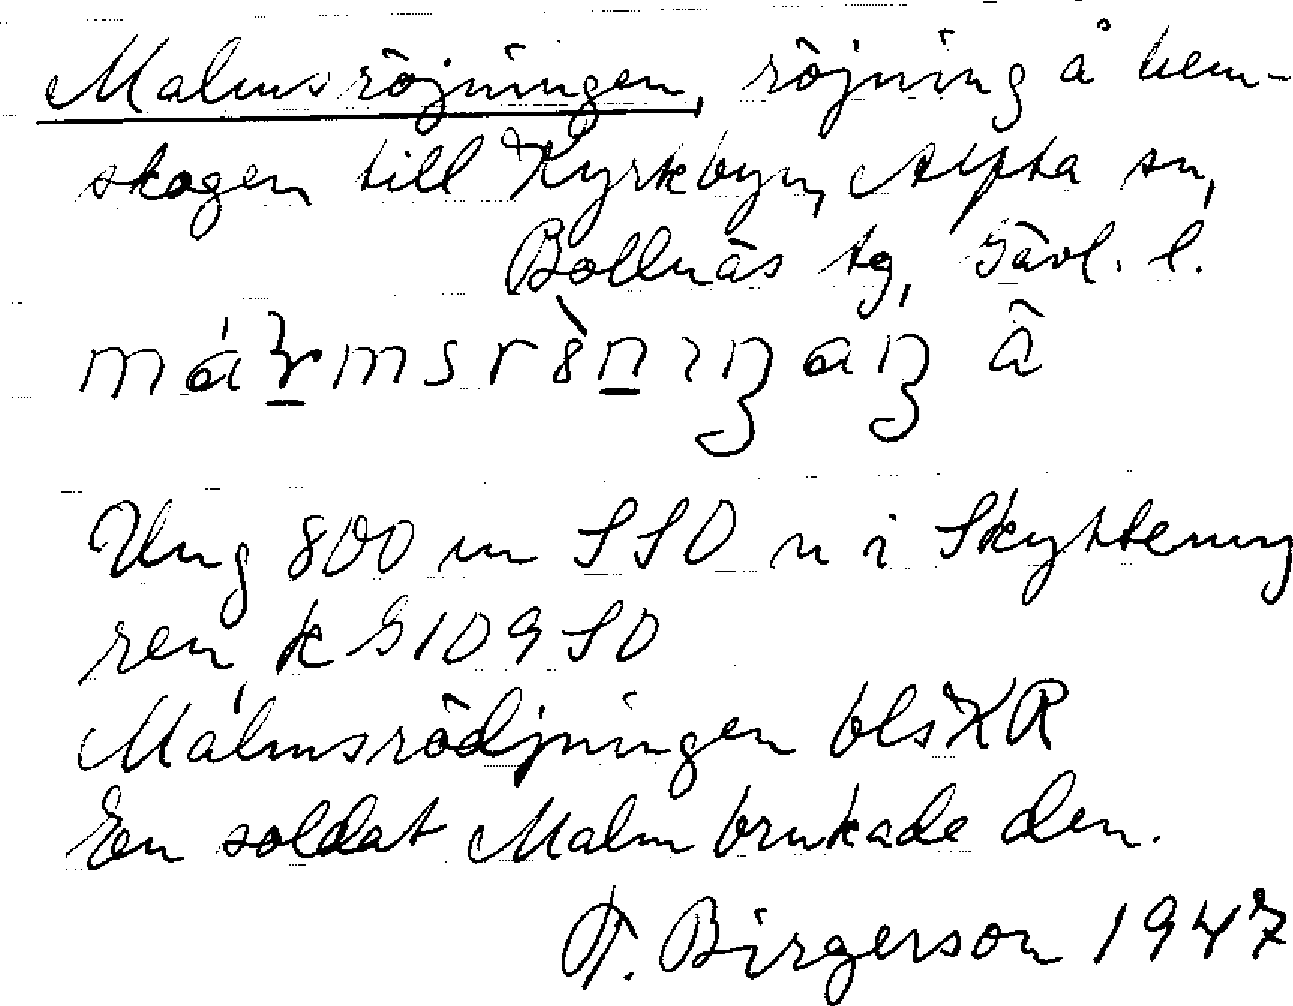 Malmsröjningen, röjning å hem-
skogen till Kyrkbyn, Alfta sn,
Bollnäs tg, Gävl. l.
Ung 800 m SSO n i Skyttemy
ren, k G10 9 SO
Málmsrödjningen bls KR
En soldat Malm brukade den.
F. Birgerson 1947